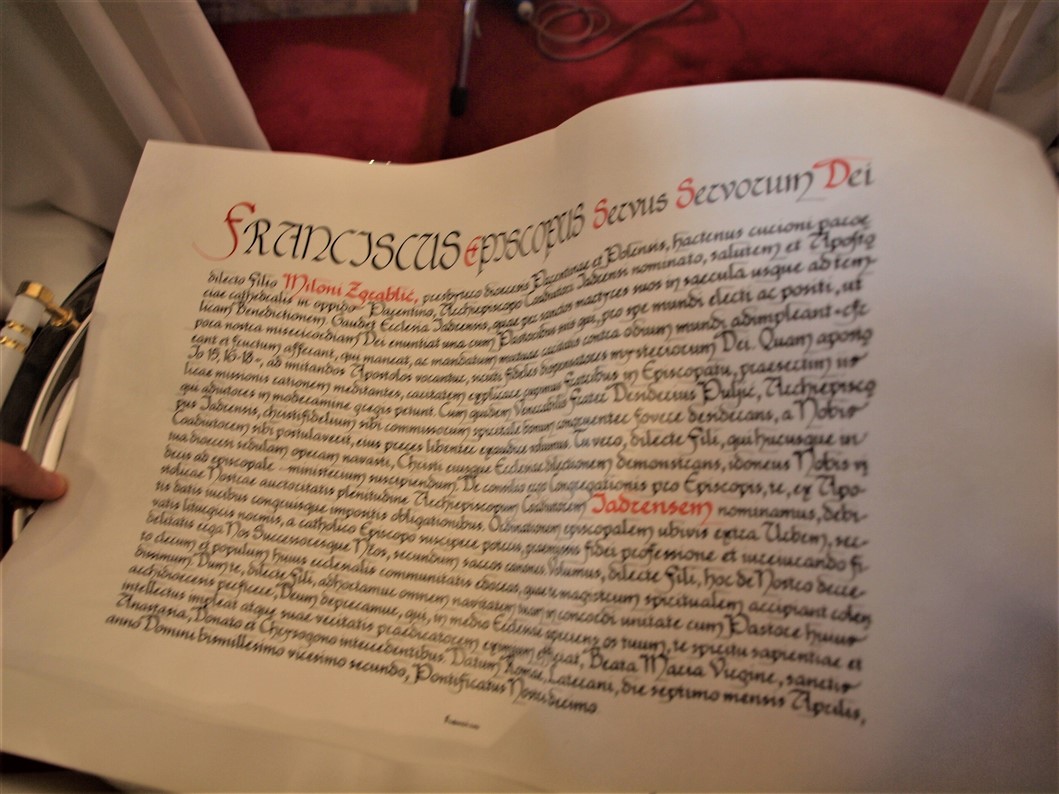 FRANCISCUS EPISCOPUS Servus Servorum Dei
dilecto Filio Miloni Zgrablić, presbytero dioecesis Parentinae et Polensis, hactenus curioni paroe
ciae cathedralis in oppido Parentino, Archiepiscopo Coadiutori Iadrensi nominato, salutem et Aposto
licam Benedictionem. Gaudet Ecclesia Iadrensis, quae per sanctos martyres suos in saecula usque ad tem-
pora nostra misericordiam Dei enuntiat una cum Pastoribus suis qui, pro spe mundi electi ac positi, ut
eant et fructum afferant, qui maneat, ac mandatum mutuae caritatis contra odium mundi adimpleant - cfr
Io 15, 16-18 -, ad imitandos Apostolos vocantur, sicuti fideles dispensatores mysteriorum Dei. Quam aposto
licae missionis rationem meditantes, caritatem explicare cupimus fratribus in Episcopatu, praesertim iis
qui adiutores in moderamine gregis petunt. Cum quidem Venerabilis Frater Desiderius Puljić, Archiepisco
pus Iadrensis, christifidelium sibi commissorum spiritale bonum congruenter fovere desiderans, a Nobis
Coadiutorem sibi postulaverit, eius preces libenter exaudire volumus. Tu vero, dilecte Fili, qui hucusque in
tua dioecesi sedulam operam navasti, Christi eiusque Ecclesiae dilectionem demonstrans, idoneus Nobis vi
deris ad episcopale ministerium suscipiendum. De consilio ergo Congregationis pro Episcopis, te, ex Apo-
stolicae Nostrae auctoritatis plenitudine Archiepiscopum Coadiutorem Iadrensem nominamus, debi-
tis datis iuribus congruisque impositis obligationibus. Ordinationem episcopalem ubivis extra Urbem, ser-
vatis liturgicis normis, a catholico Episcopo suscipere poteris, praemissis fidei professione et iureiurando fi-
delitatis erga Nos Successoresque Nostros, secundum sacros canones. Volumus, dilecte Fili, hoc de Nostro decre-
to clerum et populum huius ecclesialis communitatis edoceas, quae te magistrum spiritualem accipiant colen
dissimum. Dum te, dilecte Fili, adhortamur omnem navitatem tuam in concordi unitate cum Pastore huius
archidioecesis perficere, Deum deprecamur, qui, in medio Ecclesiae aperiens os tuum, te spiritu sapientiae et
intellectus impleat atque suae veritatis praedicatorem eximium efficiat, Beata Maria Virgine, sanctis
Anastasia, Donato et Chrysogono intercedentibus. Datum Romae, Laterani, die septimo mensis Aprilis,
anno Domini bismillesimo vicesimo secundo, Pontificatus Nostri decimo.
Franciscus